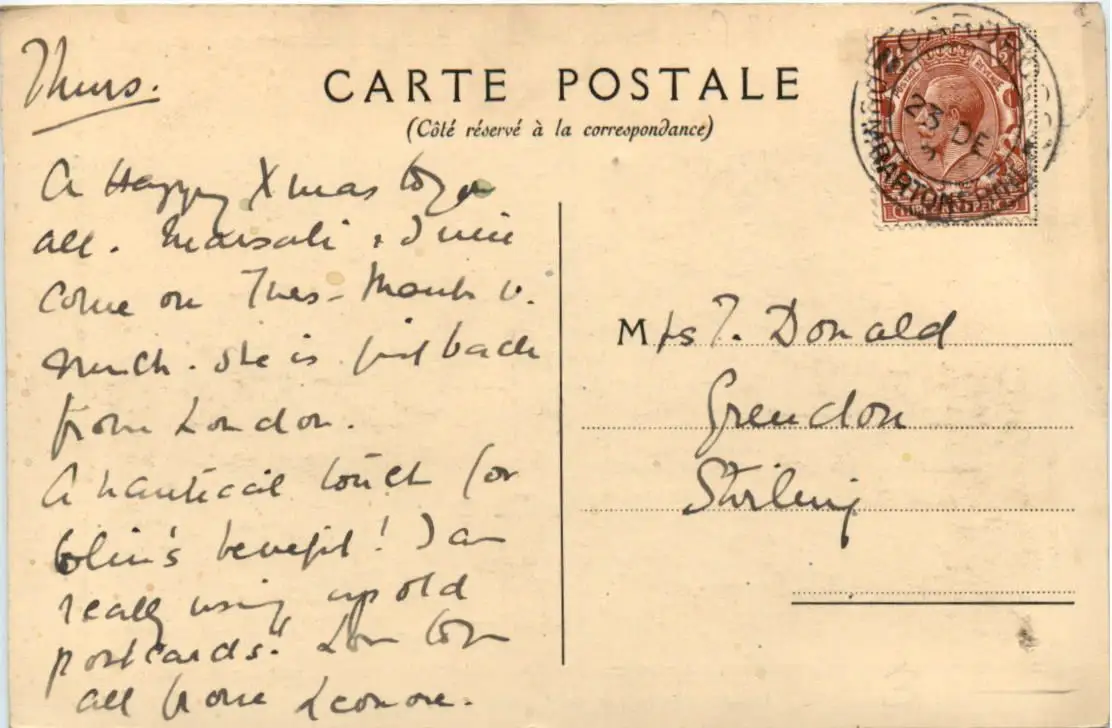 Thurs.
CARTE POSTALE
(Côté réservé à la correspondance)
A Happy Xmas to you
all. Marsali & I will
come on Tues - Thank u.
much. She is just back
from London.
A nautical touch for
Colin's benefit! I am
really using up old
postcards! Love to you
all from Leonore.
Mrs T. Donald
Grendon
Stirling
23 DE
DUMBARTONSHIRE
POSTAGE REVENUE
THREE HALFPENCE